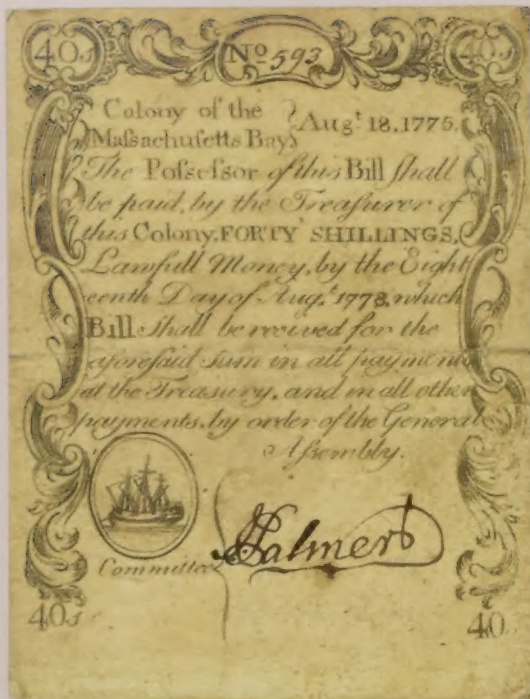 40s No 593 40s
Colony of the
Maſsachuſetts Bay } Augt. 18.1775.
The Poſseſsor of this Bill ſhall
be paid, by the Treaſurer of
this Colony, FORTY SHILLINGS,
Lawfull Money, by the Eight
eenth Day of Augt. 1778, which
Bill ſhall be received for the
aforeſaid sum in all payments
at the Treaſury, and in all other
payments, by order of the General
Aſsembly.
Committee JPalmer
40s 40